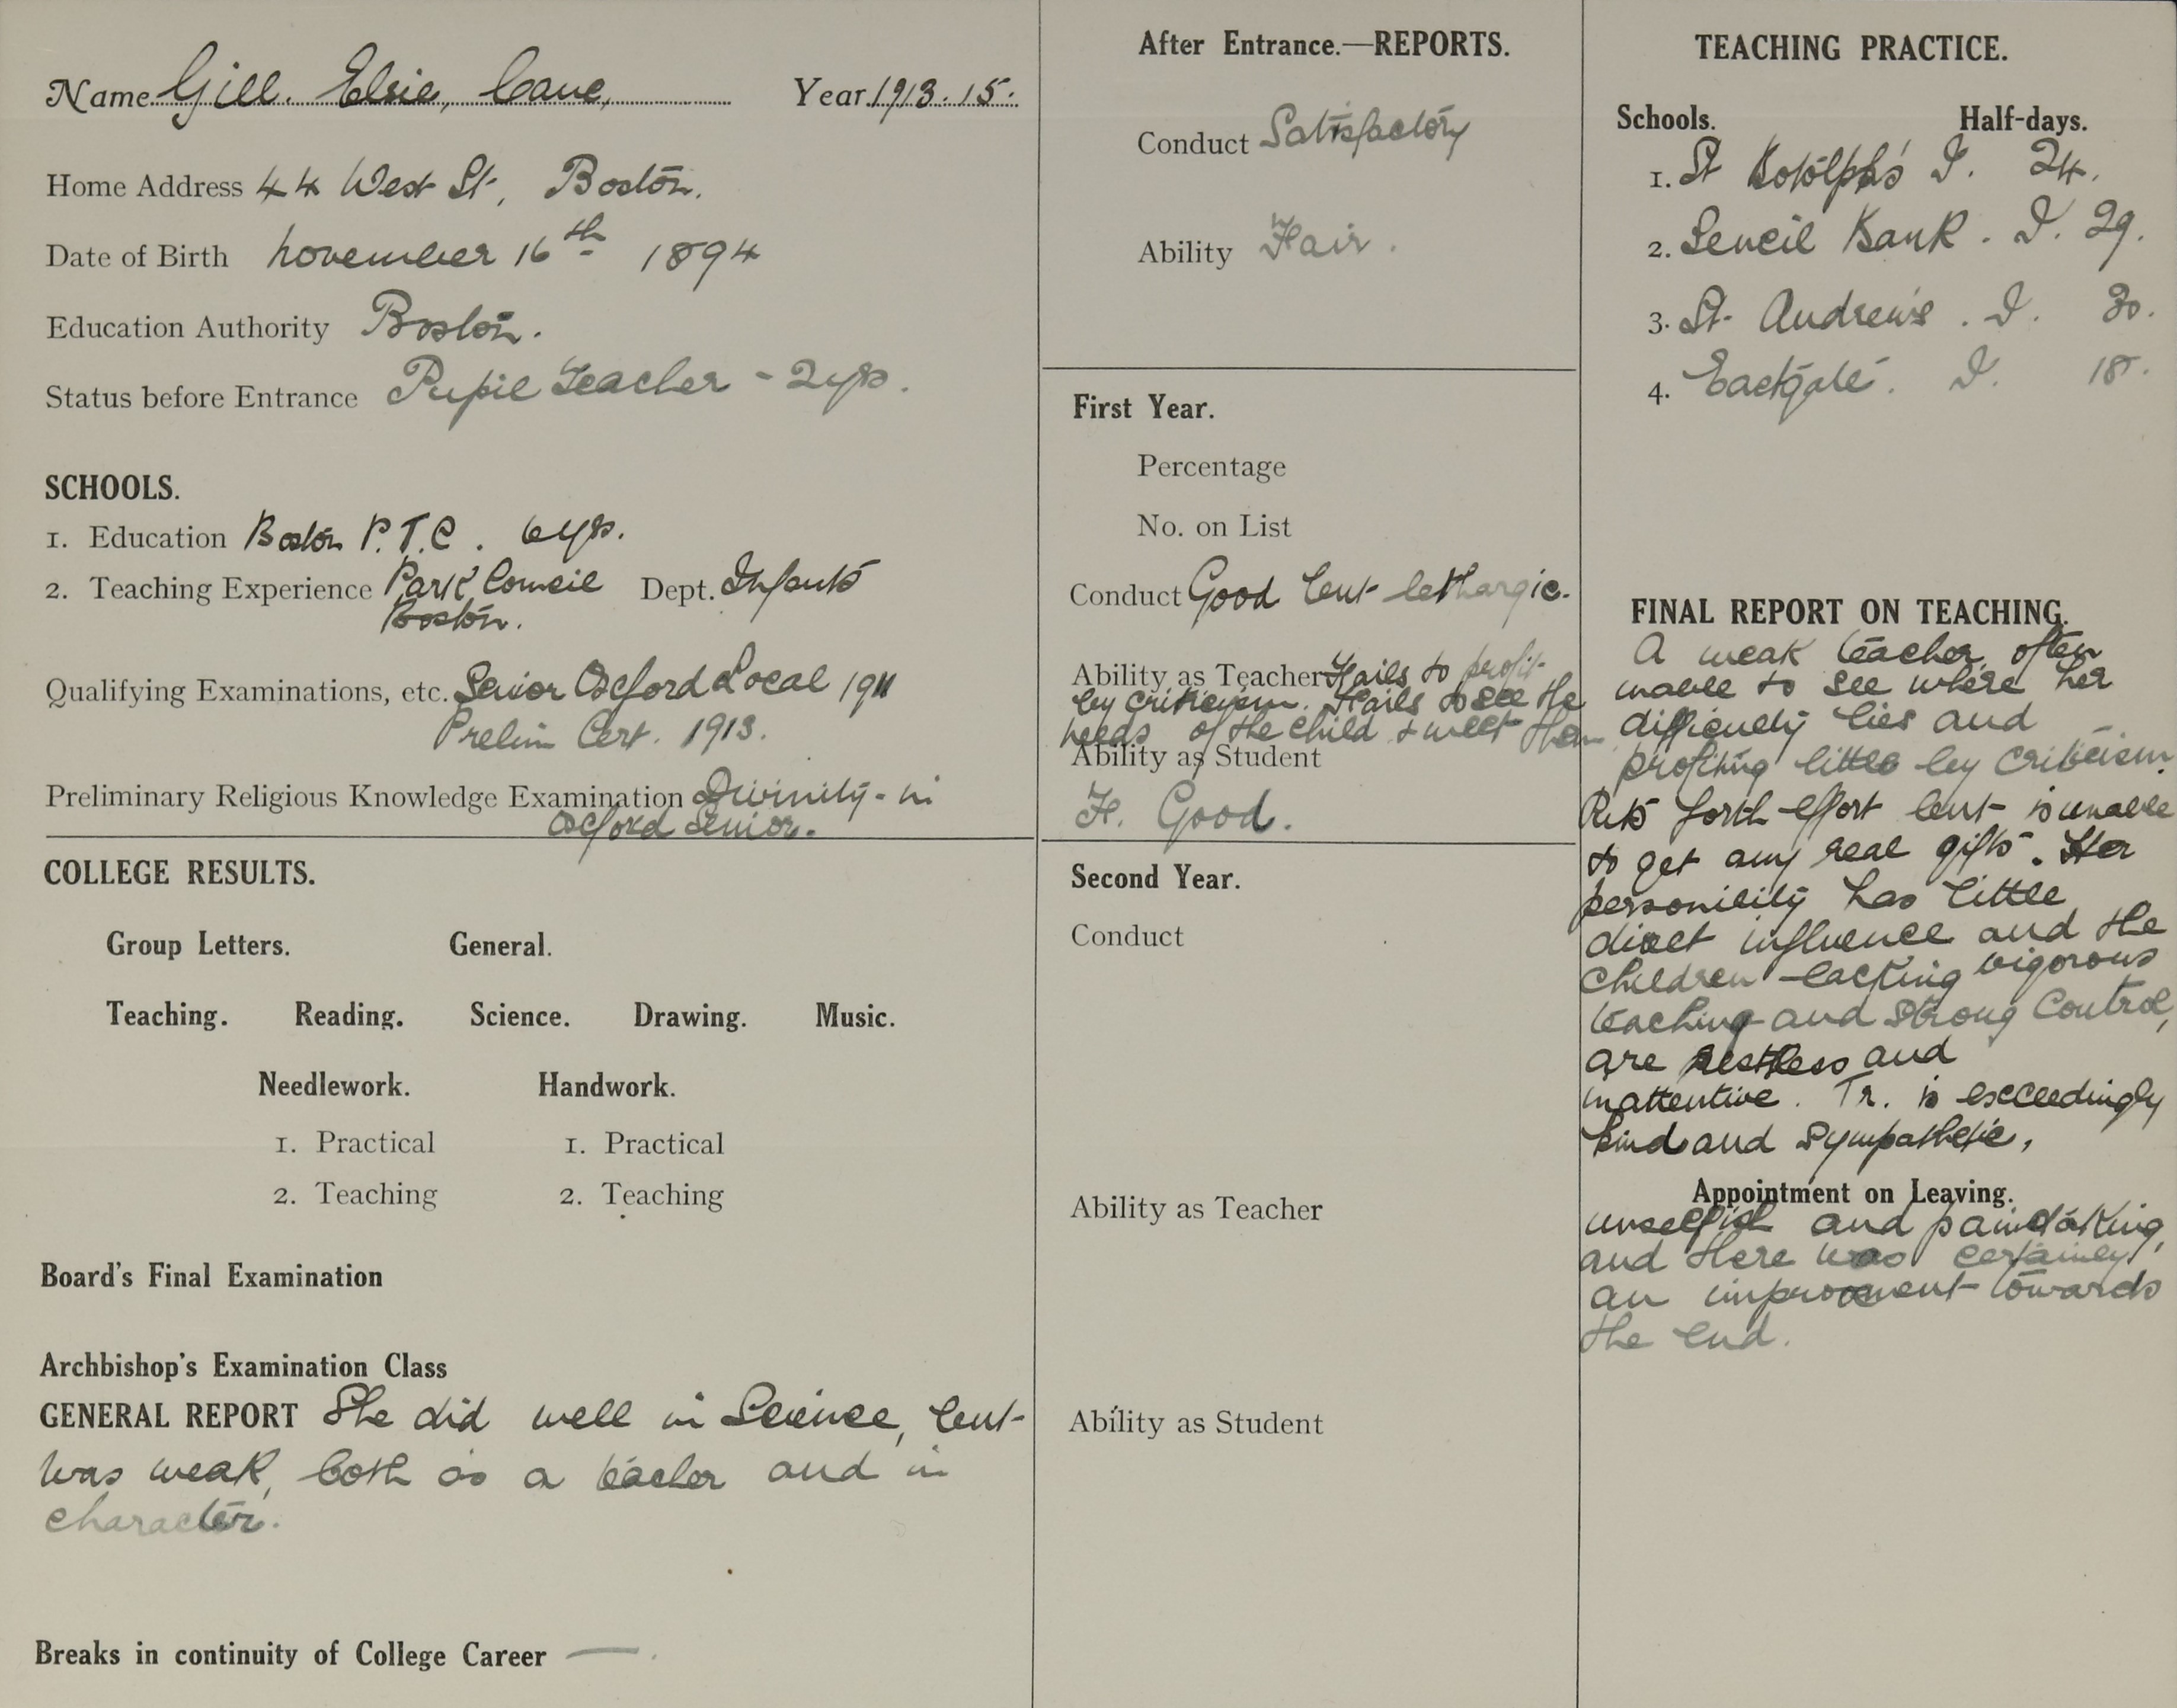 Name Gill. Elsie, Cave, Year 1913.15.
Home Address 44 West St, Boston.
Date of Birth November 16th 1894
Education Authority Boston.
Status before Entrance Pupil Teacher - 2yrs.
SCHOOLS.
1. Education Boston P.T.C. 6yrs.
2. Teaching Experience Park Council Dept. Infants
Boston.
Qualifying Examinations, etc. Senior Oxford Local 1911
Prelim Cert. 1913.
Preliminary Religious Knowledge Examination Divinity - in
Oxford Senior.
COLLEGE RESULTS.
Group Letters. General.
Teaching. Reading. Science. Drawing. Music.
Needlework. Handwork.
1. Practical 1. Practical
2. Teaching 2. Teaching
Board's Final Examination
Archbishop's Examination Class
GENERAL REPORT She did well in Science, but
was weak, both as a teacher and in
character.
Breaks in continuity of College Career —.
After Entrance.—REPORTS.
Conduct Satisfactory
Ability Fair.
First Year.
Percentage
No. on List
Conduct Good but lethargic.
Ability as Teacher Fails to profit
by criticism. Fails to see the
needs of the child & meet them
Ability as Student
F. Good.
Second Year.
Conduct
Ability as Teacher
Ability as Student
TEACHING PRACTICE.
Schools. Half-days.
1. St Botolph's I. 24.
2. Sencil Bank. I. 29.
3. St. Andrew's. I. 30.
4. Eastgate. I. 18.
FINAL REPORT ON TEACHING.
A weak teacher, often
unable to see where her
difficulty lies and
profiting little by criticism.
Puts forth effort but is unable
to get any real gifts. Her
personility has little
direct influence and the
children lacking vigorous
teaching and strong control,
are restless and
inattentive. Tr. is exceedingly
kind and sympathetic,
Appointment on Leaving.
unselfish and painstaking,
and there was certainly
an improvement towards
the end.